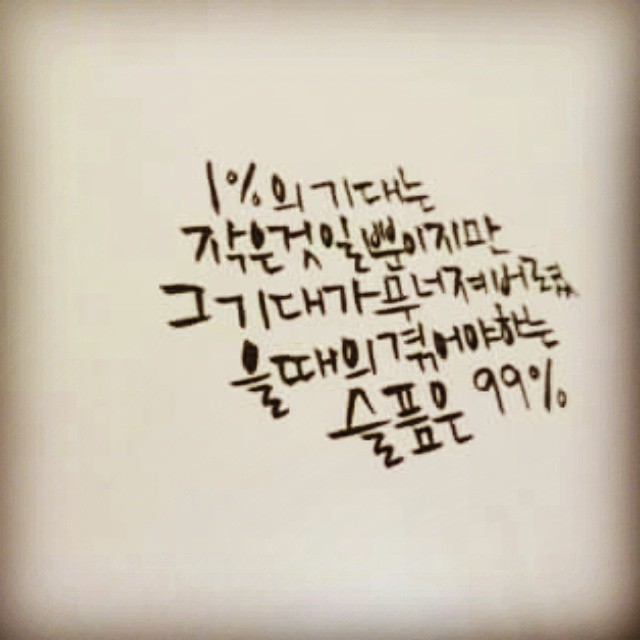 1%의 기대는
작은것일뿐이지만
그 기대가 무너져버렸
을때의 겪어야하는
슬픔은 99%